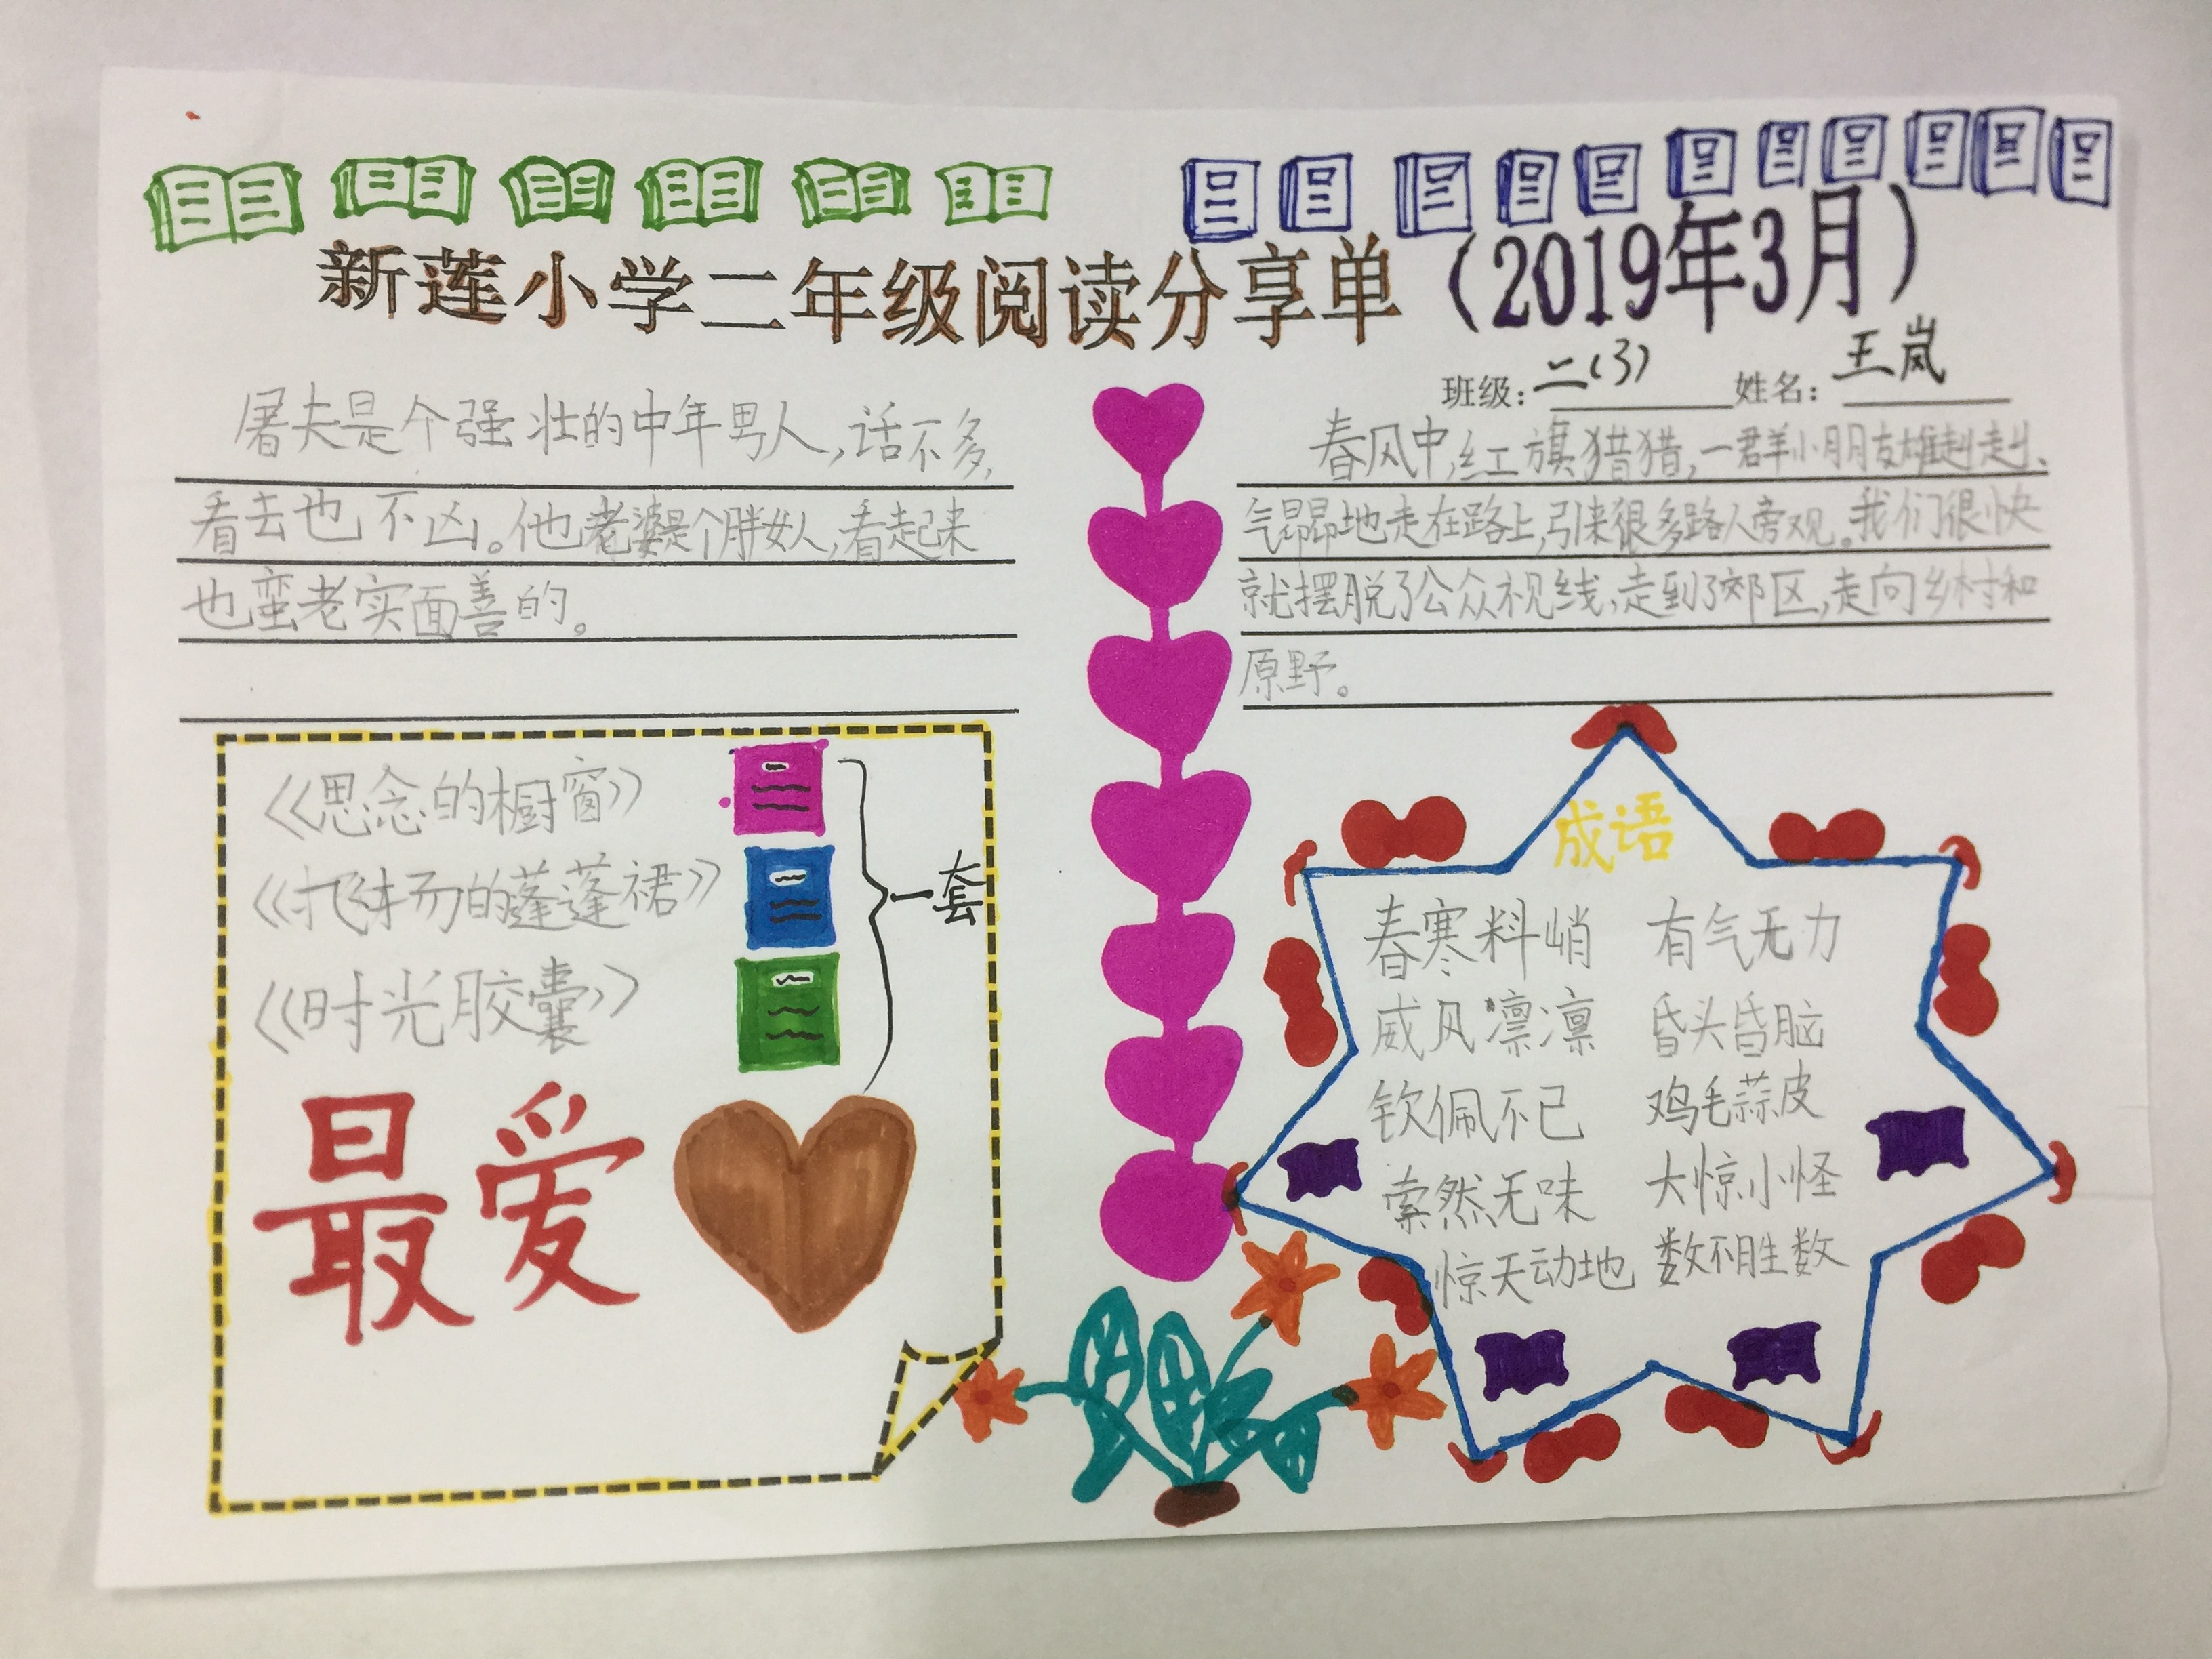 新莲小学二年级阅读分享单（2019年3月）
班级：二(3) 姓名：王岚
屠夫是个强壮的中年男人，话不多，
看去也不凶。他老婆是个胖女人，看起来
也蛮老实面善的。
春风中，红旗猎猎，一群小朋友雄赳赳、
气昂昂地走在路上，引来很多路人旁观。我们很快
就摆脱了公众视线，走到了郊区，走向乡村和
原野。
《思念的橱窗》
《飞扬的蓬蓬裙》
《时光胶囊》
一套
最爱
成语
春寒料峭 有气无力
威风凛凛 昏头昏脑
钦佩不已 鸡毛蒜皮
索然无味 大惊小怪
惊天动地 数不胜数